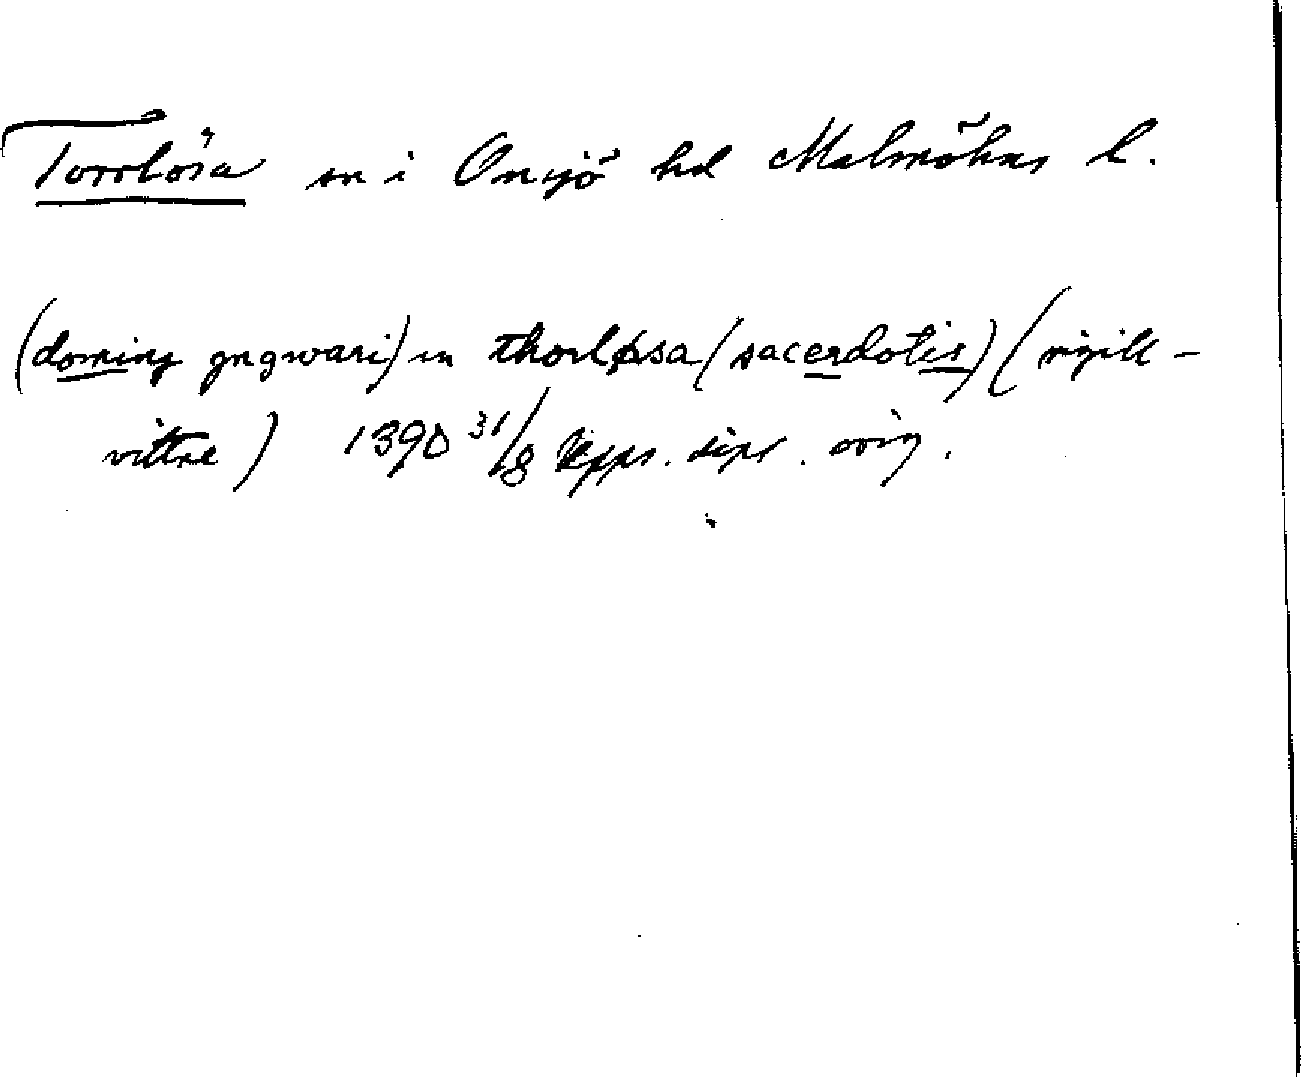 Torrlösa sn i Onsjö hd Malmöhus l.
(dominj yngwari) in thorløsa (sacerdotis) (sigill-
vittne) 1390 31/8 Upps. dipl. orig.